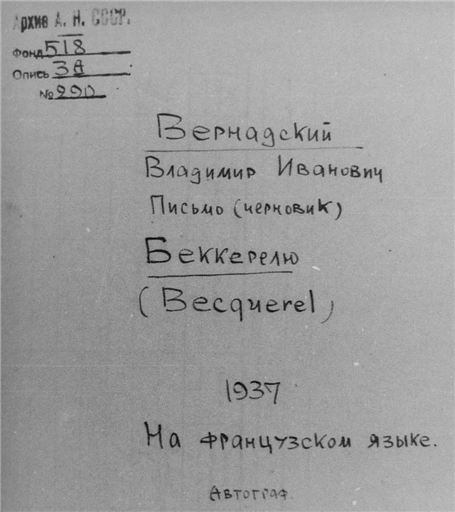 Архив А. Н. СССР.
Фонд 518
Опись 3А
№ 290
Вернадский
Владимир Иванович
Письмо (черновик)
Беккерелю
(Becquerel)
1937
На французском языке.
Автограф.